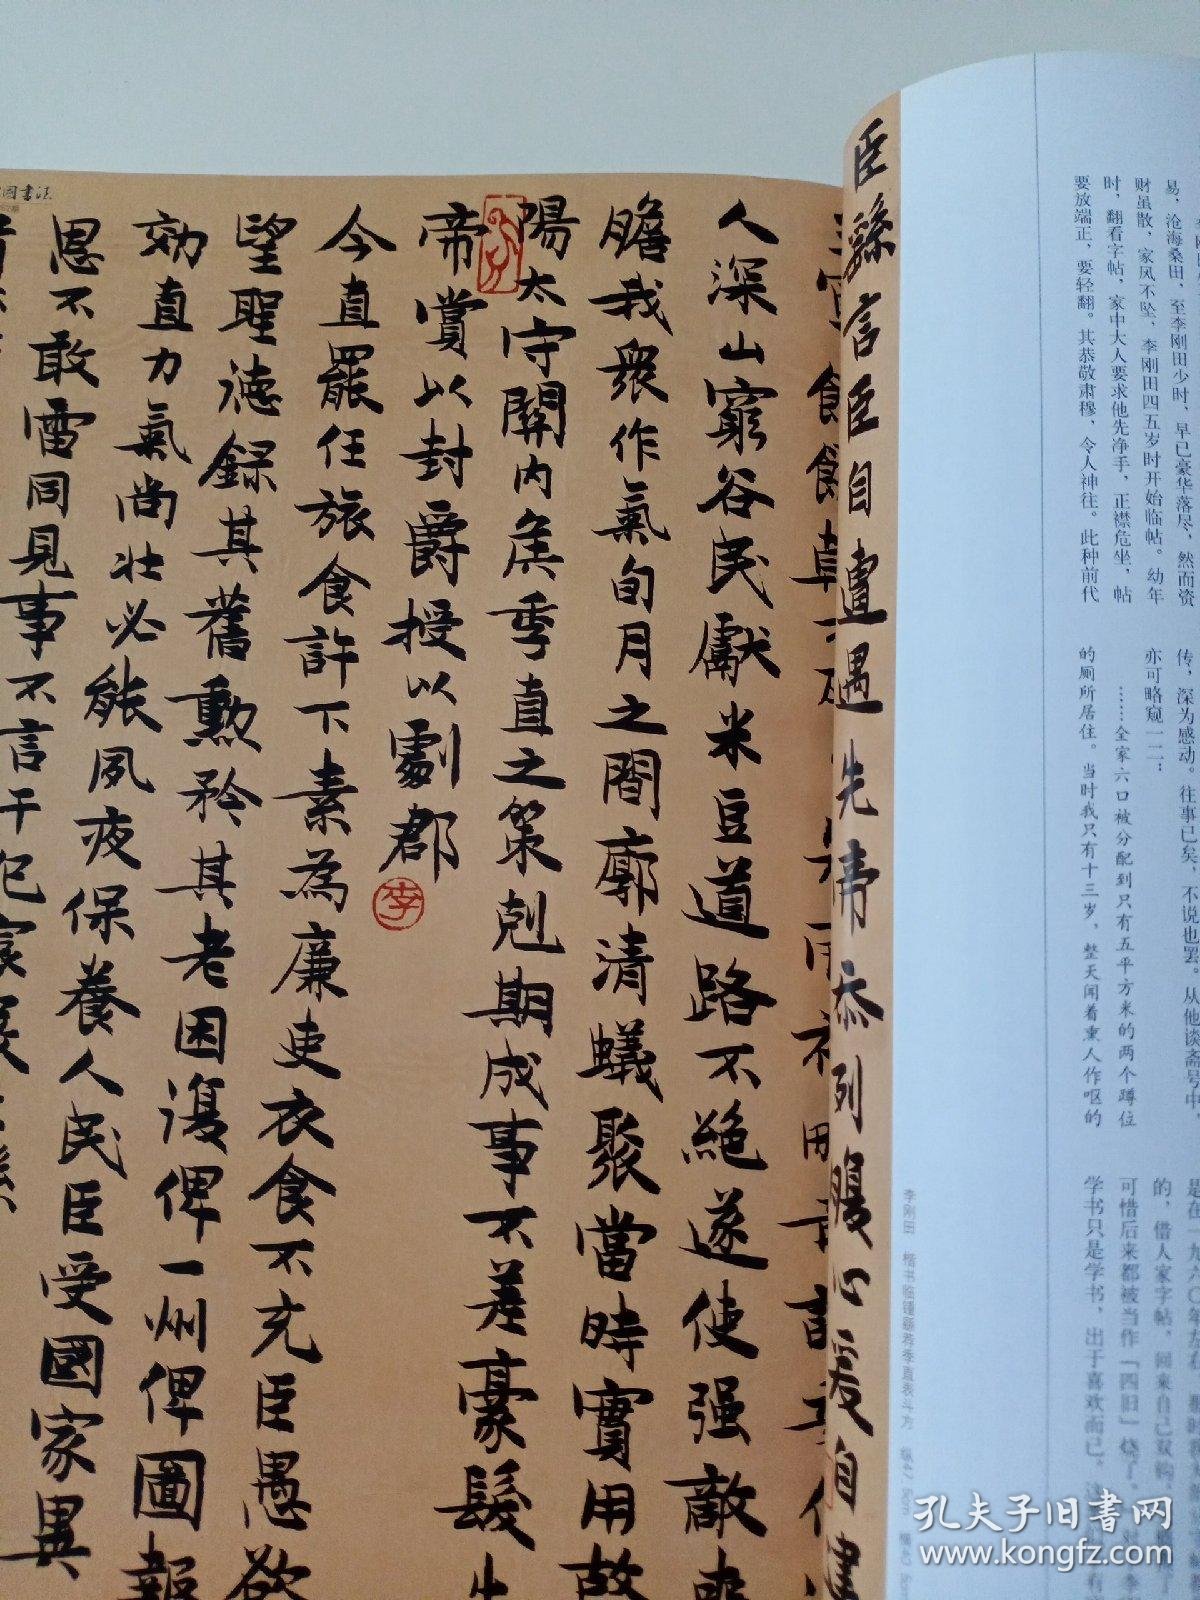 臣繇言臣自遭遇先帝忝列腹心爰自建
人深山窮谷民獻米豆道路不絶遂使强敵喪
膽我衆作氣旬月之間廓清蟻聚當時實用故
陽太守關内侯季直之策剋期成事不差豪髮
帝賞以封爵授以劇郡
李
今直罷任旅食許下素為廉吏衣食不充臣愚欲
望聖德録其舊勳矜其老困復俾一州俾圖報
効直力氣尚壯必能夙夜保養人民臣受國家異
恩不敢雷同見事不言干犯宸
易，沧海桑田，至李刚田少时，早已豪华落尽，然而资
财虽散，家风不坠，李刚田四五岁时开始临帖。幼年
时，翻看字帖，家中大人要求他先净手，正襟危坐，帖
要放端正，要轻翻。其恭敬肃穆，令人神往。此种前代
传，深为感动。往事已矣，不说也罢。从他谈斋号中
亦可略窥一二：
……全家六口被分配到只有五平方米的两个蹲位
的厕所居住。当时我只有十三岁，整天闻着熏人作呕的
的，借人家字帖，回来自己双钩
可惜后来都被当作「四旧」烧了。
学书只是学书，出于喜欢而已。
李刚田 楷书临锺繇荐季直表斗方
孔夫子旧书网
www.kongfz.com